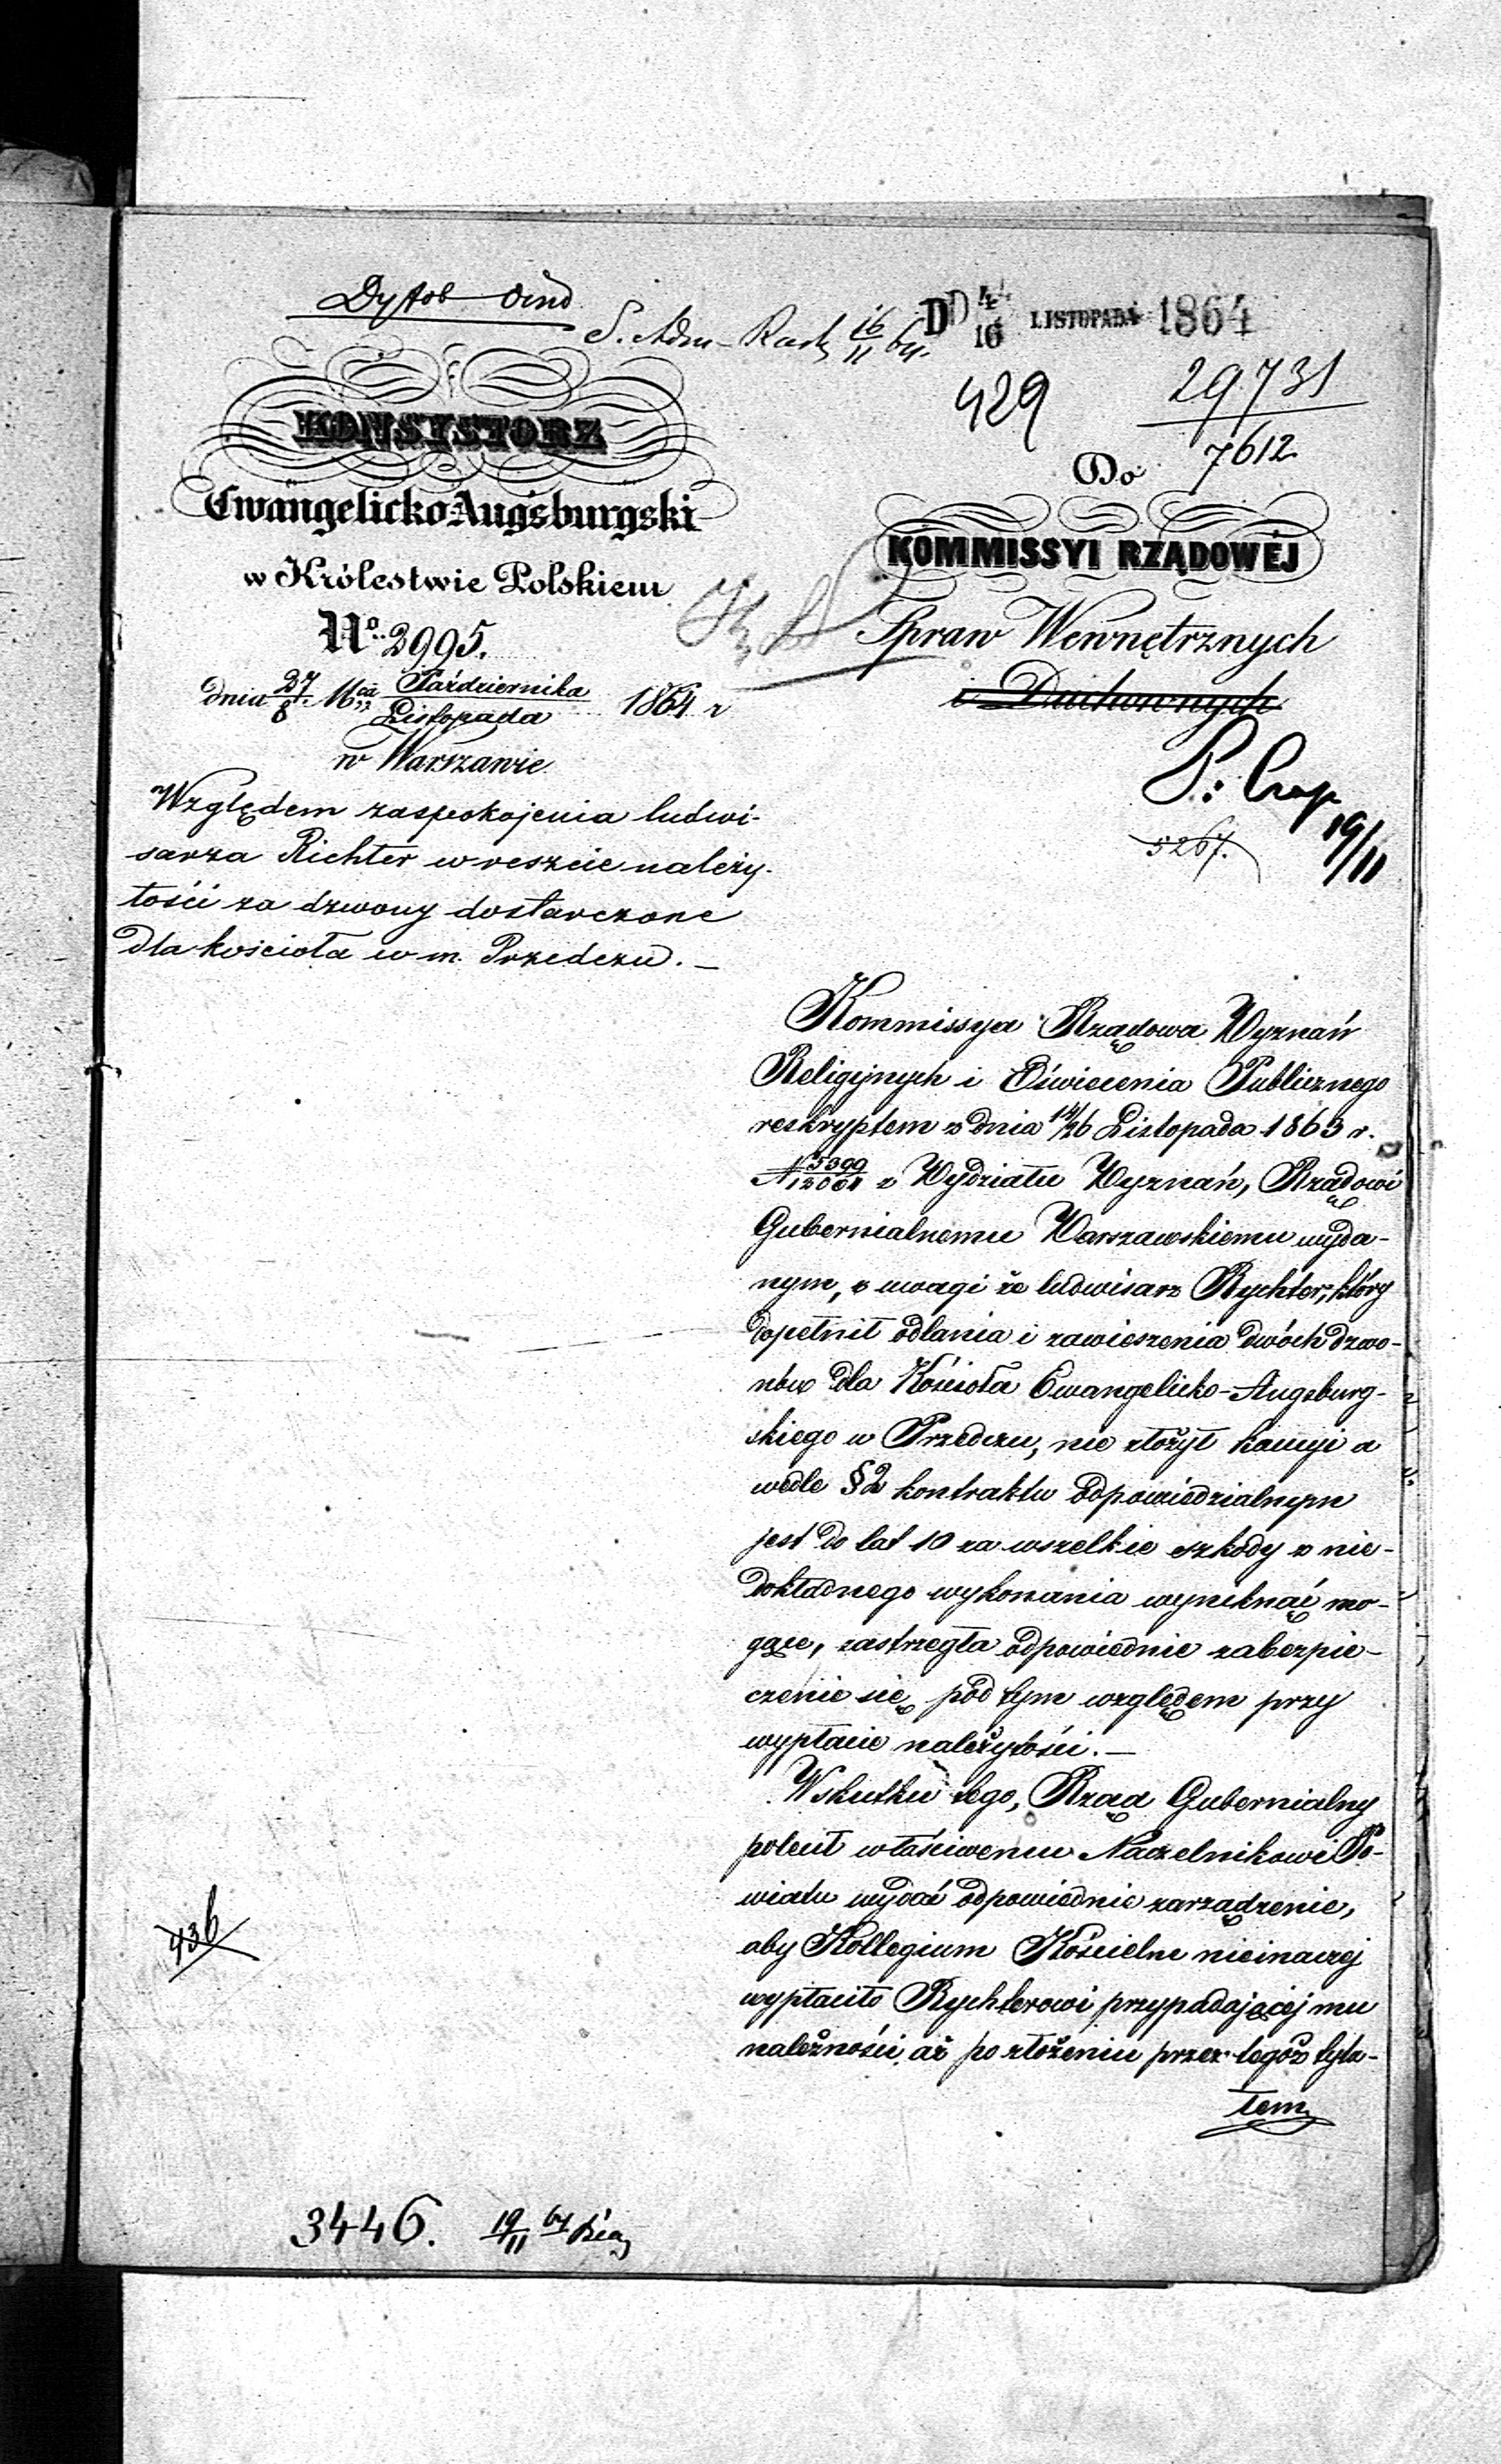 S. Adm 16/11 64.
DD 4/16 LISTOPADA 1864
429
29731
7612
KONSYSTORZ
Ewangelicko-Augsburgski
w Królestwie Polskiem
No. 2995.
dnia 27/8 Mca Października/Listopada 1864 r
w Warszawie
Względem zaspokojenia ludwi-
sarza Richter w reszcie należy-
tości za dzwony dostarczone
dla kościoła w m. Przedczu. —
Do
KOMMISSYI RZĄDOWÉJ
Spraw Wewnętrznych
i Duchownych
19/11
5267.
Kommissya Rządowa Wyznań
Religijnych i Oświecenia Publicznego
reskryptem z dnia 14/26 Listopada 1863 r.
N 5399/12001 z Wydziału Wyznań, Rządowi
Gubernialnemu Warszawskiemu wyda-
nym, z uwagi że ludwisarz Rychter, który
dopełnił odlania i zawieszenia dwóch dzwo-
nów dla Kościoła Ewangelicko-Augsburg-
skiego w Przedczu, nie złożył kaucyi a
wedle §2 kontraktu odpowiedzialnym
jest do lat 10 za wszelkie szkody z nie-
dokładnego wykonania wyniknąć mo-
gące, zastrzegła odpowiednie zabezpie-
czenie się pod tym względem przy
wypłacie należytości. —
Wskutku tego, Rząd Gubernialny
polecił właściwemu Naczelnikowi Po-
wiatu wydać odpowiednie zarządzenie,
aby Kollegium Kościelne nieinaczej
wypłaciło Rychterowi przypadającej mu
należności, aż po złożeniu przez tegoż tytu-
łem
436
3446. 19/11 64